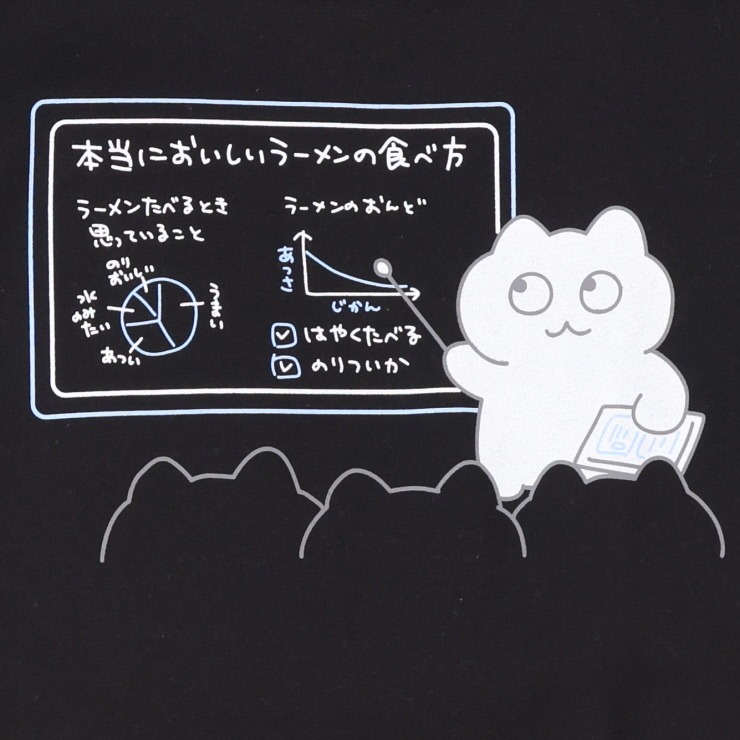 本当においしいラーメンの食べ方
ラーメンたべるとき
思っていること
のり
おいしい
水
のみ
たい
あつい
うまい
ラーメンのおんど
あつさ
じかん
はやくたべる
のりついか